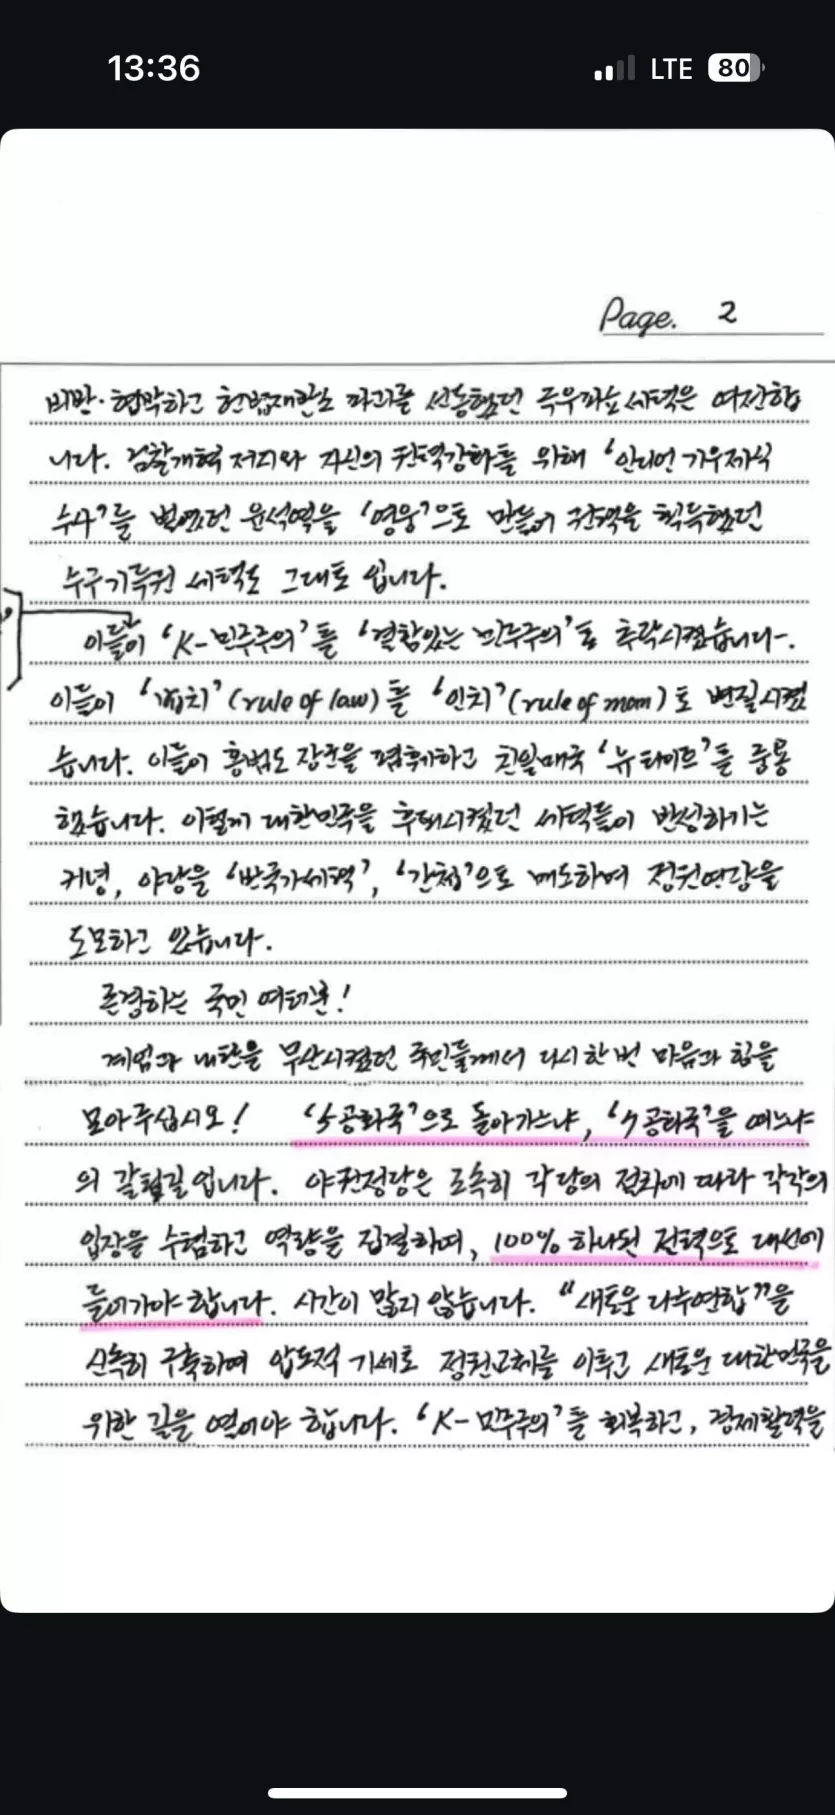 13:36
LTE 80
Page. 2
비반·협박하고 헌법재판소 파괴를 선동했던 극우파쇼세력은 여전합
니다. 검찰개혁 저지와 자신의 권력강화를 위해 '인디언 기우제식
수사'를 벌였던 윤석열을 '영웅'으로 만들어 권력을 획득했던
수구기득권 세력도 그대로 입니다.
이들이 'K-민주주의'를 '결함있는 민주주의'로 추락시켰습니다.
이들이 '법치'(rule of law)를 '인치'(rule of man)로 변질시켰
습니다. 이들이 홍범도 장군을 폄훼하고 친일매국 '뉴라이트'를 중용
했습니다. 이렇게 대한민국을 후퇴시켰던 세력들이 반성하기는
커녕, 야당을 '반국가세력', '간첩'으로 매도하며 정권연장을
도모하고 있습니다.
존경하는 국민 여러분!
계엄과 내란을 무산시켰던 국민들께서 다시 한 번 마음과 힘을
모아주십시오! '5공화국'으로 돌아가느냐, '7공화국'을 여느냐
의 갈림길입니다. 야권정당은 조속히 각 당의 절차에 따라 각각의
입장을 수렴하고 역량을 집결하며, 100% 하나된 전력으로 대선에
들어가야 합니다. 시간이 많지 않습니다. "새로운 다수연합"을
신속히 구축하여 압도적 기세로 정권교체를 이루고 새로운 대한민국을
위한 길을 열어야 합니다. 'K-민주주의'를 회복하고, 경제활력을